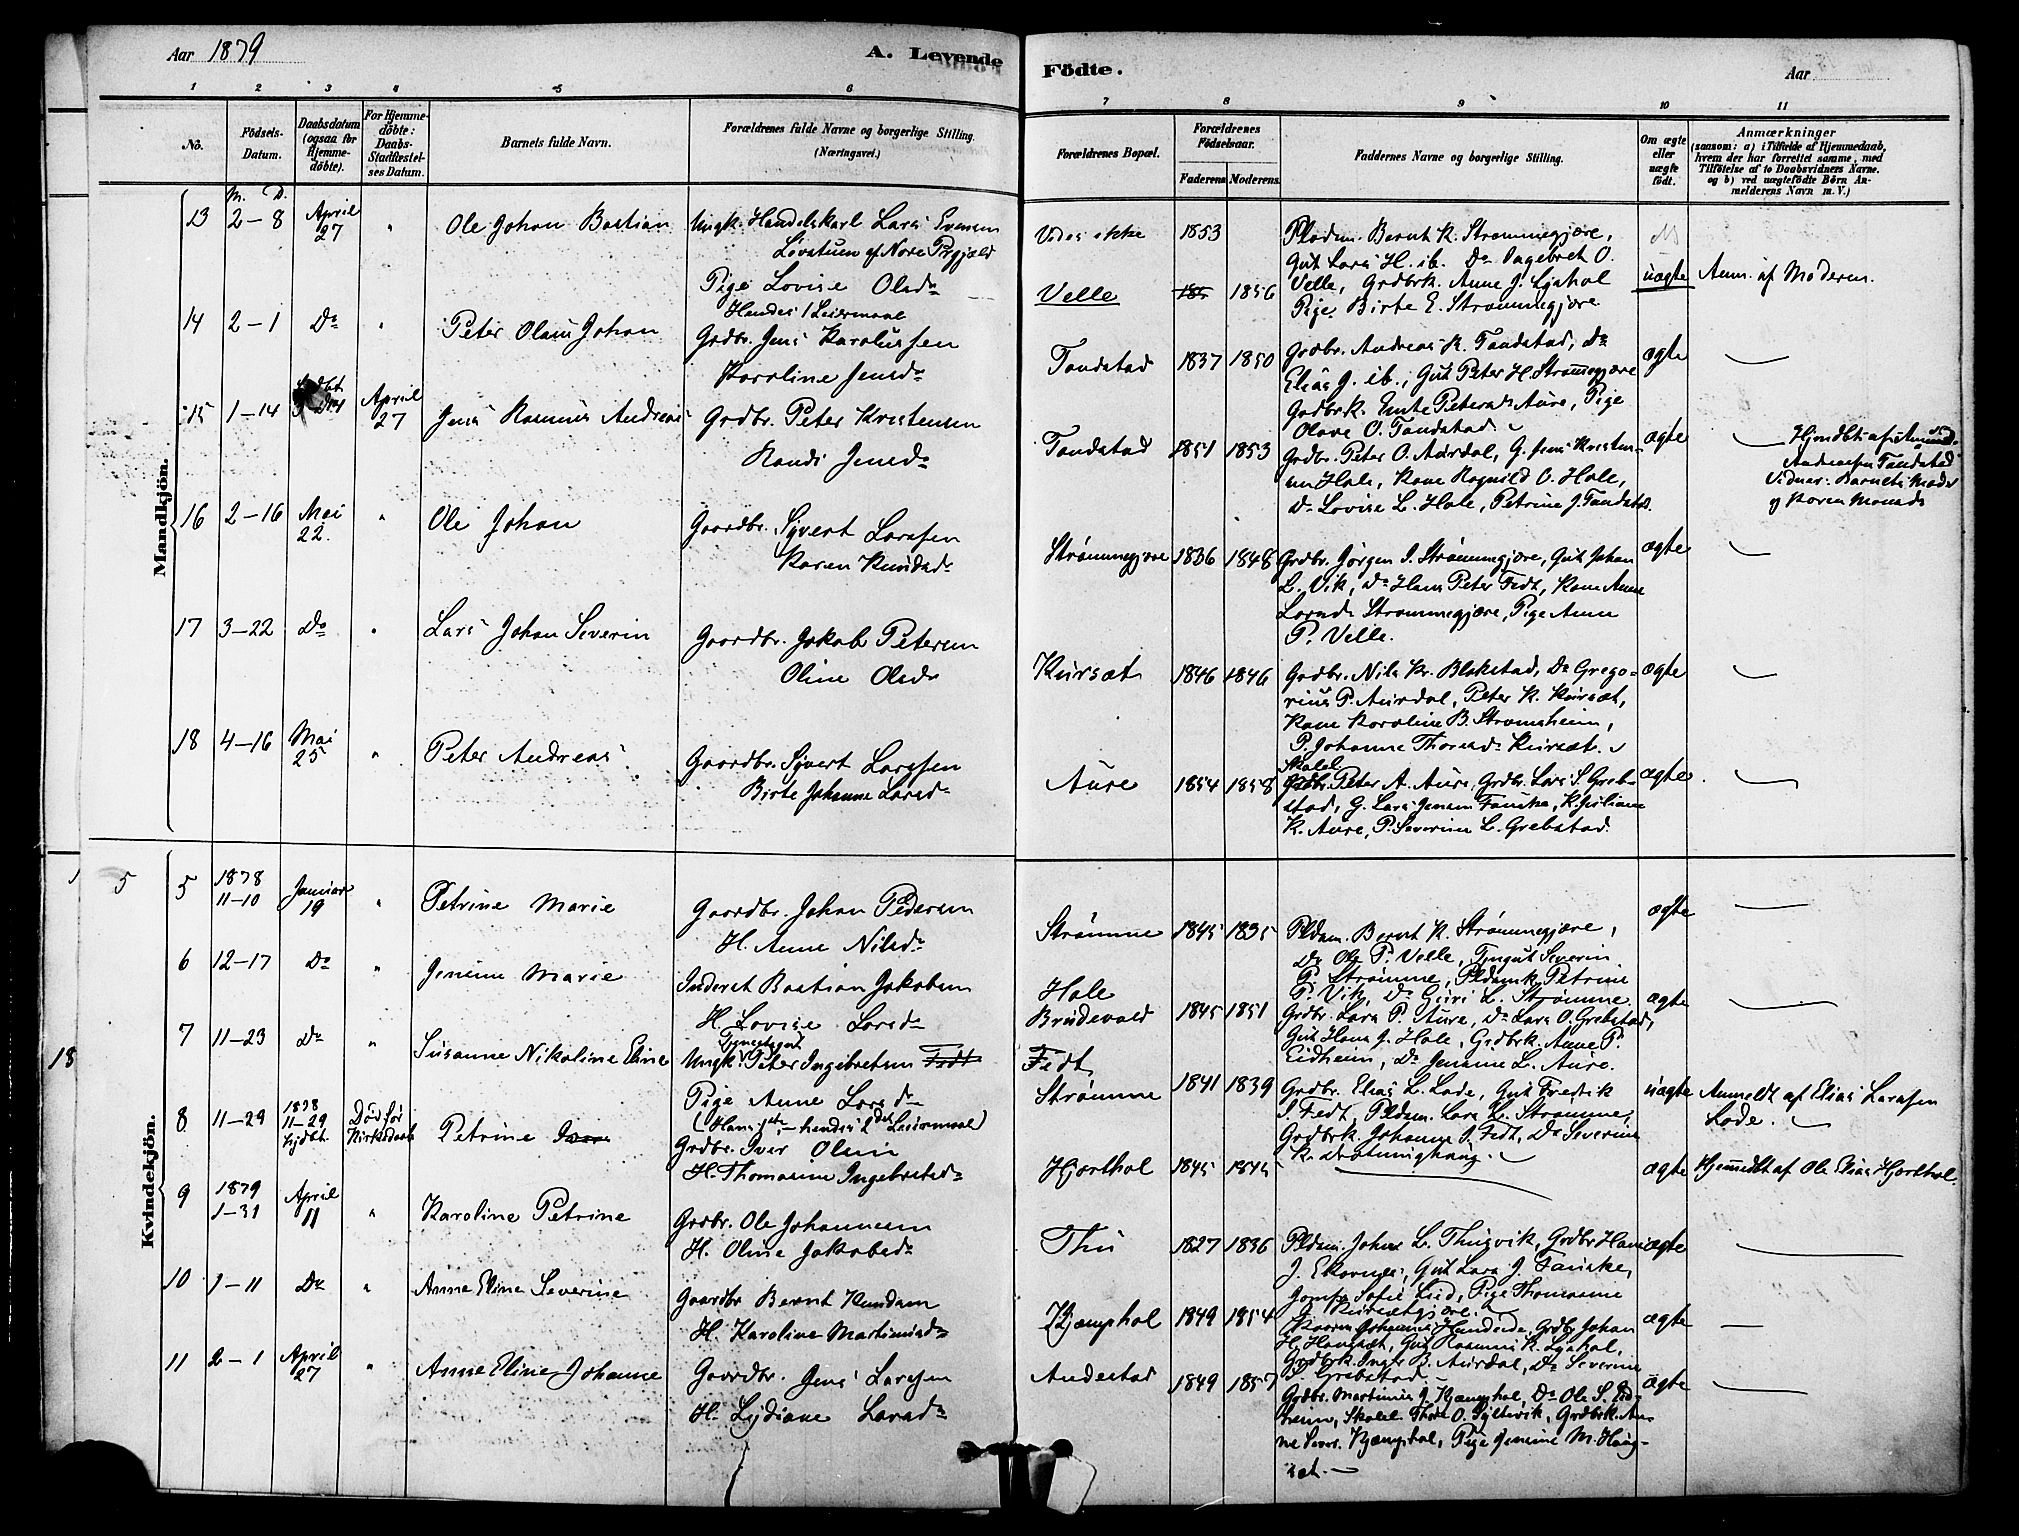 Aar 1879
A. Levende
Födte.
Aar
1 2 3 4 5 6 7 8 9 10 11
No.
Födsels-Datum.
Daabsdatum (ogsaa for Hjemme-döbte).
For Hjemme-döbte: Daabs-Stadfæstel-ses Datum.
Barnets fulde Navn.
Forældrenes fulde Navne og borgerlige Stilling. (Næringsvei.)
Forældrenes Bopæl.
Forældrenes Födselsaar.
Faderens Moderens
Faddernes Navne og borgerlige Stilling.
Om ægte eller uægte födt.
Anmærkninger
(saasom: a) i Tilfælde af Hjemmedaab,
hvem der har forrettet samme, med
Tilföielse af to Daabsvidners Navne.
og b) ved uægtefödte Börn An-
melderens Navn m. V.)
M. D.
Mandkjön.
13 2-8 April 27 " Ole Johan Bastian
Ungk. Handelskarl Lars Evensen
Løvatuen af Nore Prgjæld
Pige Lovise Olsdr
Hendes 1 Leiermaal
Vides ikke 1853
Velle 1856
Pladsm. Bernt K. Strømmegjære,
Gut Lars H. ib. Do Ingebret O.
Velle, Grdbrk. Anne J. Ljøhol
Pige Birte E. Strømmegjære
uægte Anm. af Moderen.
14 2-1 Do " Peter Olaus Johan
Grdbr. Jens Karolussen
Karoline Jensdr
Tandstad 1837 1850
Grdbr. Andreas K. Tandstad, Do
Elias J. ib., Gut Peter H Strømmegjære
Grdbrk. Emte Petersdr Aure, Pige
Olave O. Tandstad
ægte
15 1-14 April 27 Jens Rasmus Andreas
Grdbr. Peter Kristensen
Randi Jensdr
Tandstad 1851 1853
Grdbr. Peter O. Aurdal, G. Jens Kristen-
sen Hole, Kone Ragnild O. Hole,
Do Lovise L. Hole, Petrine J. Tandstad.
ægte
Hjmdbt. af Amund
Andreasen Tandstad
Vidner: Barnets Moder
og Karen Monsdr
16 2-16 Mai 22. " Ole Johan
Gaardbr. Syvert Larssen
Karen Knudsdr
Strømmegjære 1836 1848
Grdbr. Jørgen S. Strømmegjære, Gut Johan
L. Vik, Do Hans Peter Fedt, Kone Anne
Larsdr Strømmegjære, Pige Anne
P. Velle.
ægte
17 3-22 Do " Lars Johan Severin
Gaardbr. Jakob Petersen
Oline Olsdr
Kursæt 1846 1846
Grdbr. Nils Kr. Blakstad, Do Grego-
rius P. Aurdal, Peter K. Kursæt,
Kone Karoline B. Stromsheim,
P. Johanne Thoresdr Kursæt.
ægte
18 4-16 Mai 25 " Peter Andreas
Gaardbr. Syvert Larssen
Birte Johanne Larsdr
Aure 1854 1858
Skolel.
Grdbr. Peter A. Aure, Grdbr. Lars S Greb-
stad, G. Lars Jensen Fauske, K. Juliane
K. Aure, P. Severine L. Grebstad.
ægte
Kvindekjön.
5 5 1878 11-10 Januar 19 " Petrine Marie
Gaardbr. Johan Pedersen
H. Anne Nilsdr
Strømme 1845 1835
Pldsm. Bernt K. Strømmegjære,
Do Ole P. Velle, Tjngut Severin
P. Strømme, Pldsmk. Petrine
P. Vik, Do Guri L. Strømme.
ægte
6 12-17 Do " Jenine Marie
Inderst Bastian Jakobsen
H. Lovise Larsdr
Hole
Brudevold 1845 1851
Grdbr. Lars P. Aure, Do Lars O. Grebstad,
Gut Hans J. Hole, Grdbrk. Anne P.
Eidheim, Do Jenine L. Aure.
ægte
18
7 11-23 Do " Susanne Nikoline Eline
Tjenestegut
Ungk. Peter Ingebretsen Fedt
Pige Anne Larsdr
Fedt
Strømme 1841 1839
Grdbr. Elias L. Lade, Gut Fredrik
S. Fedt, Pldsm. Lars L. Strømme,
Grdbrk. Johanne J. Fedt, Do Severine
K. Dratunighaug.
uægte Anmeldt af Elias Larssen
Lade.
8 11-29 1878 11-29 Hjdbt. Død før Kirkedaab Petrine
Grdbr. Iver Olsen
H. Thomasine Ingebretsdr
Hjorthol 1845 1845
ægte Hjemmedbt af Ole Elias Hjorthol.
9 1879 1-31 April 11 " Karoline Petrine
Grdbr. Ole Johannesen
H. Oline Jakobsdr
Thu 1827 1836
Pldsm. Johan L. Thusvik, Grdbr Hans
J. Ekornes, Gut Lars J. Fauske,
Jomfr. Sofie Lied, Pige Thomasine
Kursætgjære.
ægte
10 1-11 Do " Anne Eline Severine
Gaardbr Bernt Knudsen
H. Karoline Martinusdr
Kjæmphol 1849 1854
Grdbr. Johan
H. Haugset, Gut Rasmus K. Ljøhol,
Grdbrk. Inger B. Aurdal, Do Severine
Grebstad.
ægte
11 2-1 April 27 " Anne Eline Johanne
Gaardbr. Jens Larssen
H. Lydiane Larsdr
Andestad 1849 1857
Grdbr. Martinus J. Kjæmphol, Do Ole S. Eid-
heim, Skolel. Thore O. Syltevik, Grdbrk. An-
ne Kjæmphol, Pige Jensine M. Haug-
set.
ægte